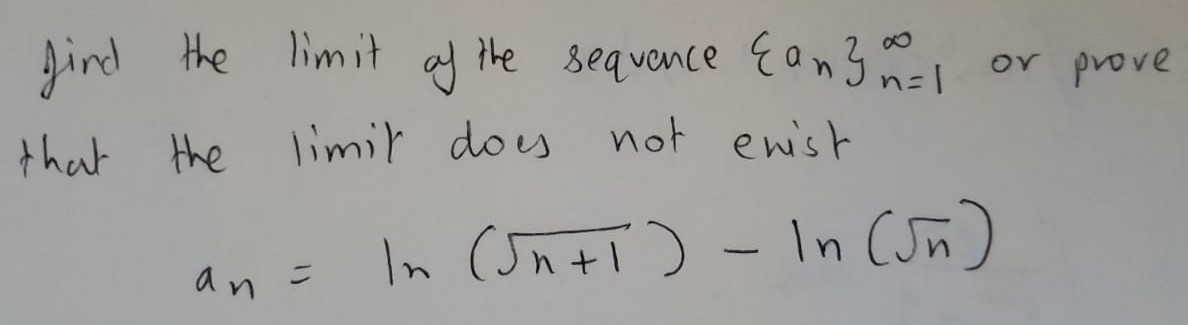 find the limit of the sequence {an}∞n=1 or prove
that the limit does not exist
an = ln (√n+1) − ln (√n)